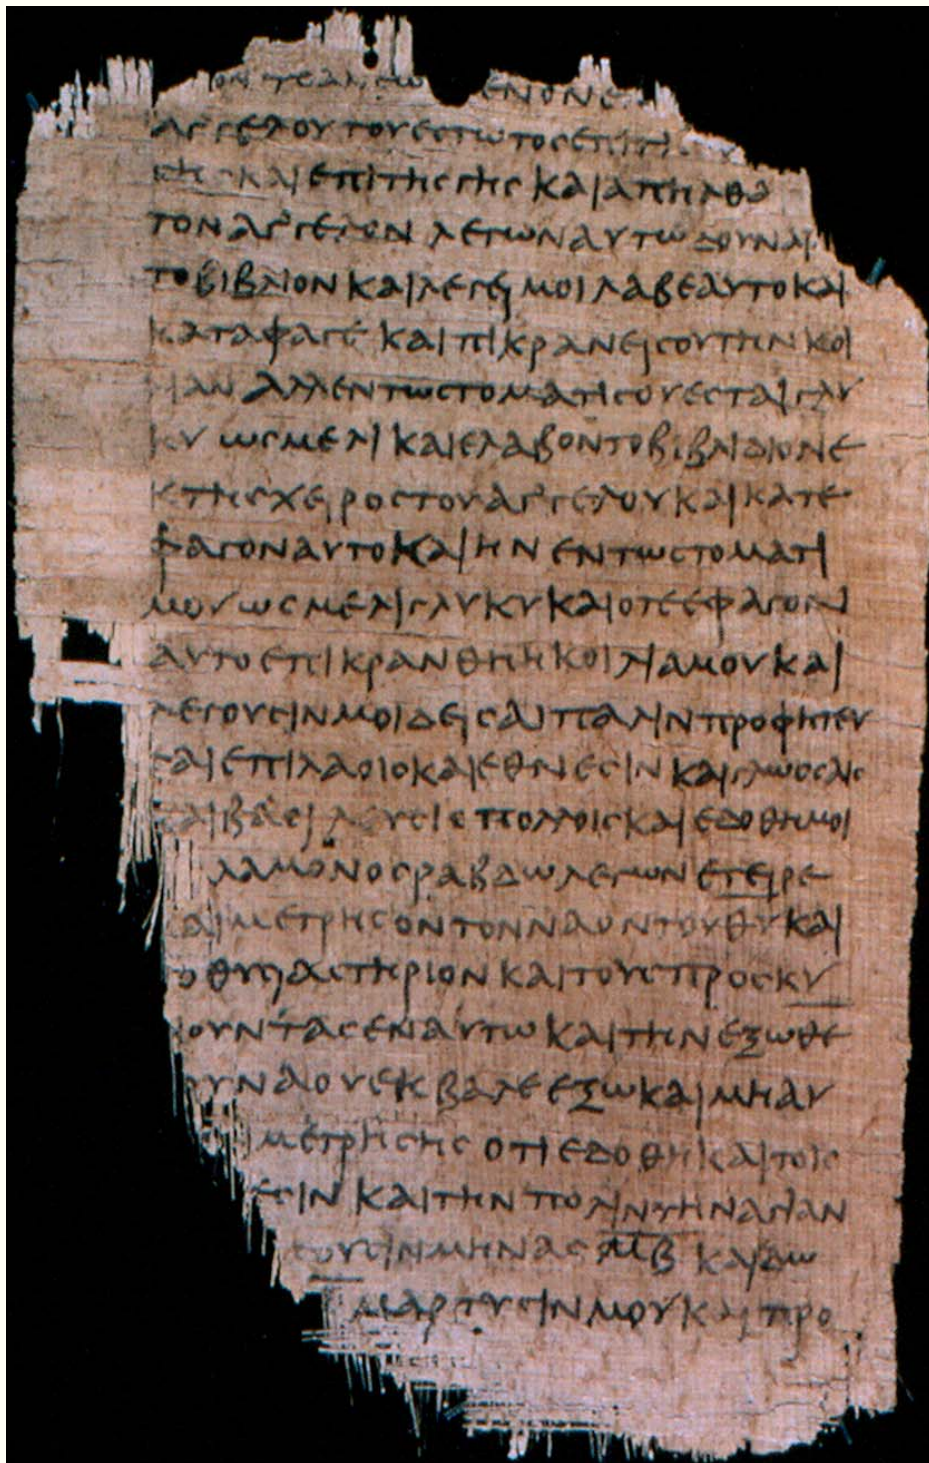 ΕΝΟΝΕ
ΑΓΓΕΛΟΥΤΟΥΕΣΤΩΤΟΣΕΠΙΤΗ
ΣΗΣΚΑΙΕΠΙΤΗΣΓΗΣΚΑΙΑΠΗΛΘΑ
ΤΟΝΑΓΓΕΛΟΝΛΕΓΩΝΑΥΤΩΔΟΥΝΑΙ
ΤΟΒΙΒΛΙΟΝΚΑΙΛΕΓΕΙΜΟΙΛΑΒΕΑΥΤΟΚΑΙ
ΚΑΤΑΦΑΓΕΚΑΙΠΙΚΡΑΝΕΙΣΟΥΤΗΝΚΟΙ
ΛΙΑΝΑΛΛΕΝΤΩΣΤΟΜΑΤΙΣΟΥΕΣΤΑΙΓΛΥ
ΚΥΩΣΜΕΛΙΚΑΙΕΛΑΒΟΝΤΟΒΙΒΛΙΔΙΟΝΕ
ΚΤΗΣΧΕΙΡΟΣΤΟΥΑΓΓΕΛΟΥΚΑΙΚΑΤΕ
ΦΑΓΟΝΑΥΤΟΚΑΙΗΝΕΝΤΩΣΤΟΜΑΤΙ
ΜΟΥΩΣΜΕΛΙΓΛΥΚΥΚΑΙΟΤΕΕΦΑΓΟΝ
ΑΥΤΟΕΠΙΚΡΑΝΘΗΗΚΟΙΛΙΑΜΟΥΚΑΙ
ΛΕΓΟΥΣΙΝΜΟΙΔΕΙΣΑΙΠΑΛΙΝΠΡΟΦΗΤΕΥ
ΣΑΙΕΠΙΛΑΟΙΣΚΑΙΕΘΝΕΣΙΝΚΑΙΓΛΩΣΣΑΙΣ
ΚΑΙΒΑΣΙΛΕΥΣΙΠΟΛΛΟΙΣΚΑΙΕΔΟΘΗΜΟΙ
ΡΑΒΔΩΛΕΓΩΝΕΓΕΙΡΕ
ΚΑΙΜΕΤΡΗΣΟΝΤΟΝΝΑΟΝΤΟΥΘΥΚΑΙ
ΟΘΥΣΙΑΣΤΗΡΙΟΝΚΑΙΤΟΥΣΠΡΟΣΚΥ
ΝΟΥΝΤΑΣΕΝΑΥΤΩΚΑΙΤΗΝΕΞΩΘΕ
ΝΑΟΥΕΚΒΑΛΕΕΞΩΚΑΙΜΗΑΥ
ΜΕΤΡΗΣΗΣΟΤΙΕΔΟΘΗΚΑΙΤΟΙΣ
ΕΣΙΝΚΑΙΤΗΝΠΟΛΙΝΤΗΝΑΓΙΑΝ
ΟΥΣΙΝΜΗΝΑΣΜΒΚΑΙΔΩ
ΜΑΡΤΥΣΙΝΜΟΥΚΑΙΠΡΟ